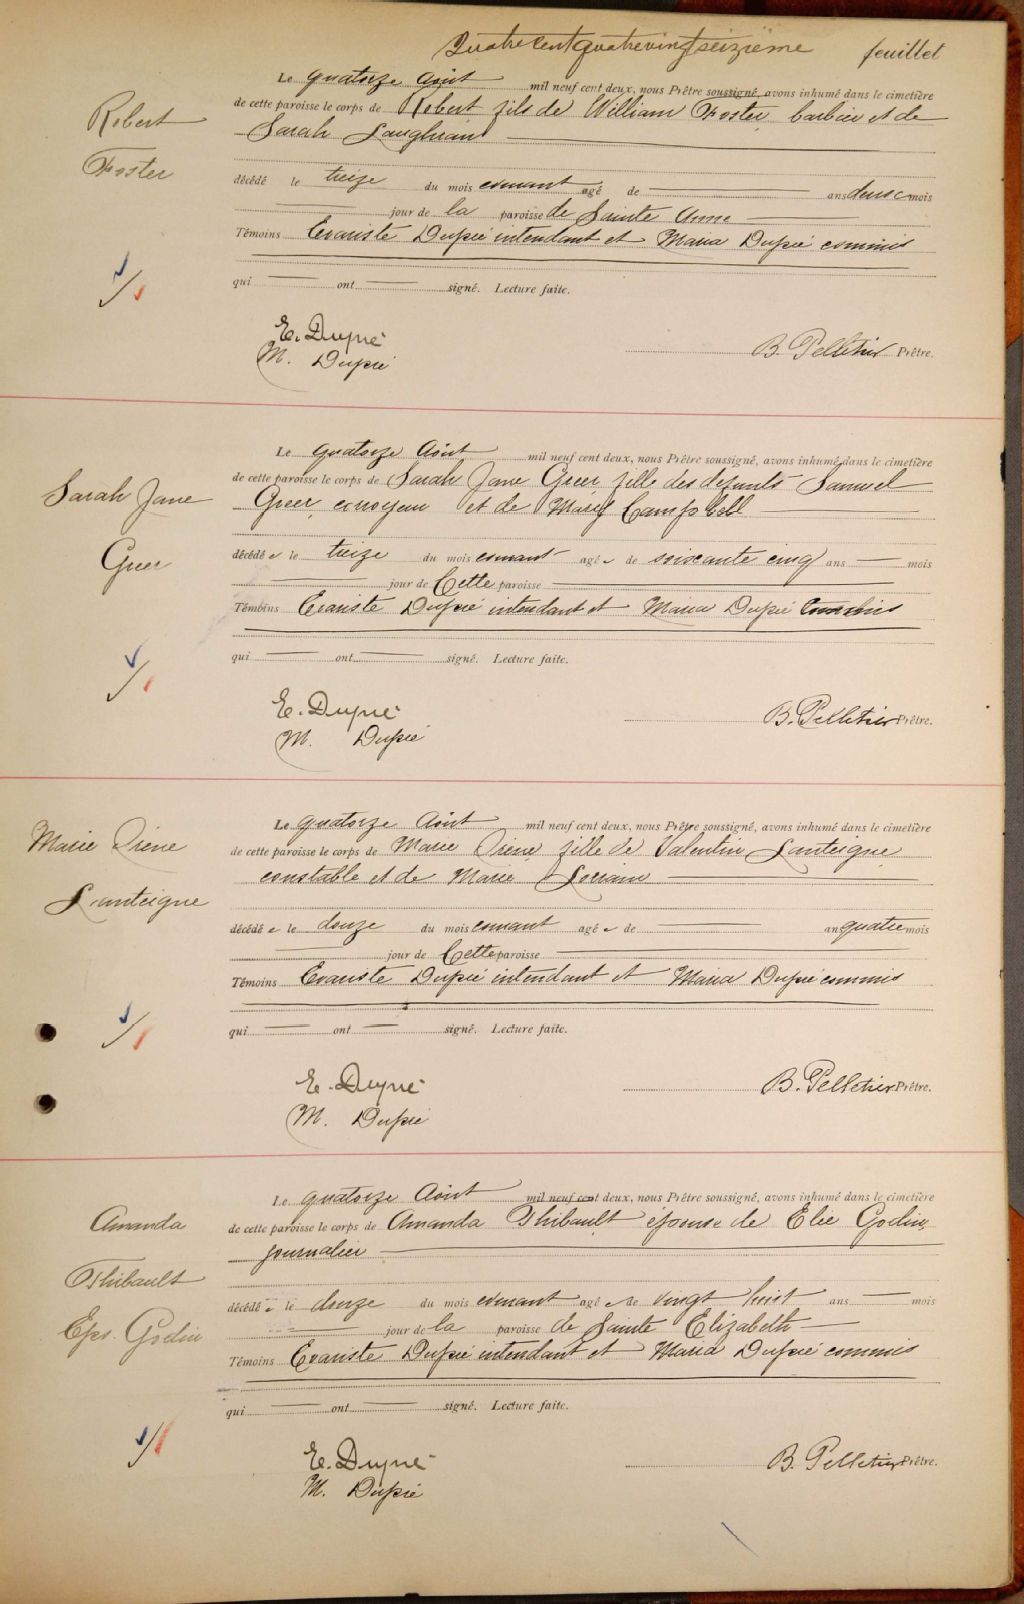 Quatre cent quatre vingt seizième feuillet
Robert
Foster
Le quatorze Août mil neuf cent deux, nous Prêtre soussigné, avons inhumé dans le cimetière
de cette paroisse le corps de Robert fils de William Foster, barbier et de
Sarah Laughran
décédé le treize du mois courant agé de ans deux mois
jour de la paroisse de Sainte Anne
Témoins Evariste Dupré intendant et Maria Dupré commis
qui ont signé. Lecture faite.
E. Dupré
M. Dupré
B. Pelletier Prêtre.
Sarah Jane
Greer
Le quatorze Août mil neuf cent deux, nous Prêtre soussigné, avons inhumé dans le cimetière
de cette paroisse le corps de Sarah Jane Greer fille des defunts Samuel
Greer, corroyeur et de Mary Campbell
décédé e le treize du mois courant agé e de soixante cinq ans mois
jour de Cette paroisse
Témoins Evariste Dupré intendant et Maria Dupré commis
qui ont signé. Lecture faite.
E. Dupré
M. Dupré
B. Pelletier Prêtre.
Marie Irène
Lanteigne
Le quatorze Août mil neuf cent deux, nous Prêtre soussigné, avons inhumé dans le cimetière
de cette paroisse le corps de Marie Irène, fille de Valentin Lanteigne
constable et de Marie
décédé e le douze du mois courant agé e de an quatre mois
jour de Cette paroisse
Témoins Evariste Dupré intendant et Maria Dupré commis
qui ont signé. Lecture faite.
E. Dupré
M. Dupré
B. Pelletier Prêtre.
Amanda
Thibault
Eps. Godin
Le quatorze Août mil neuf cent deux, nous Prêtre soussigné, avons inhumé dans le cimetière
de cette paroisse le corps de Amanda Thibault épouse de Elie Godin,
journalier
décédé e le douze du mois courant agé e de vingt huit ans mois
jour de la paroisse de Sainte Elizabeth
Témoins Evariste Dupré intendant et Maria Dupré commis
qui ont signé. Lecture faite.
E. Dupré
M. Dupré
B. Pelletier Prêtre.